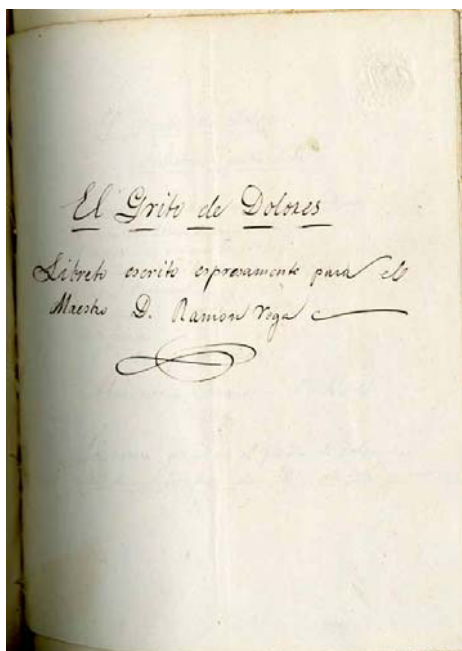 El Grito de Dolores
Libreto escrito espresamente para el
Maestro D. Ramon Vega